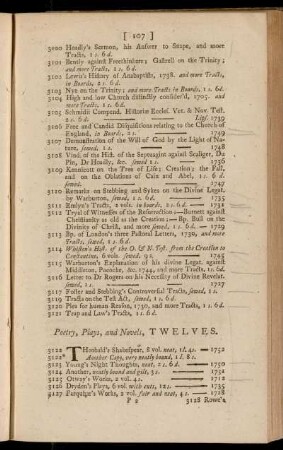 [ 107 ]
3100 Hoadly's Sermon, his Answer to Snape, and more
Tracts, 1 s. 6 d.
3101 Bently against Freethinkers; Gastrell on the Trinity;
and more Tracts, 1 s. 6 d.
3102 Lewis's History of Anabaptists, 1738. and more Tracts,
in Boards, 2 s. 6 d.
3103 Nye on the Trinity; and more Tracts in Boards, 1 s. 6 d.
3104 High and low Church distinctly consider'd, 1705. and
more Tracts, 1 s. 6 d.
3105 Schmidii Compend. Historiæ Eccles. Vet. & Nov. Test.
2 s. 6 d. — Lips. 1735
3106 Free and Candid Disquisitions relating to the Church of
England, in Boards, 2 s. — 1749
3107 Demonstration of the Will of God by the Light of Na-
ture, sewed, 1 s. — 1748
3108 Vind. of the Hist. of the Septuagint against Scaliger, Du
Pin, Dr Hoadly, &c. sewed 1 s. — 1736
3109 Kennicott on the Tree of Life; Creation; the Fall,
and on the Oblations of Cain and Abel, 1 s. 6 d.
sewed. — 1747
3110 Remarks on Stebbing and Sykes on the Divine Legat.
by Warburton, sewed, 1 s. — 1745
3111 Emlyn's Tracts, 2 vols. in boards, 2 s. 6 d. — 1731
3112 Tryal of Witnesses of the Resurrection;—Burnett against
Christianity as old as the Creation;—Bp. Bull on the
Divinity of Christ, and more, sewed, 1 s. 6 d. — 1729
3113 Bp. of London's three Pastoral Letters, 1730, and more
Tracts, sewed, 1 s. 6 d.
3114 Whiston's Hist. of the O. & N. Test. from the Creation to
Constantine, 6 vols. sewed, 9 s. — 1745
3115 Warburton's Explanation of his divine Legat. against
Middleton, Pococke, &c. 1744, and more Tracts, 1 s. 6 d.
3116 Letter to Dr Rogers on his Necessity of Divine Revelat.
sewed, 1 s. — 1727
3117 Foster and Stebbing's Controversial Tracts, sewed, 1 s.
3119 Tracts on the Test Act, sewed, 1 s. 6 d.
3120 Plea for human Reason, 1730, and more Tracts, 1 s. 6 d.
3121 Trap and Law's Tracts, 1 s. 6 d.
Poetry, Plays, and Novels, TWELVES.
3122 Theobald's Shakespear, 8 vol. neat, 1 l. 4 s. — 1752
3122* Another Copy, very neatly bound, 1 l. 8 s.
3123 Young's Night Thoughts, neat, 2 s. 6 d. — 1751
3124 Another, neatly bound and gilt, 3 s. — 1751
3125 Otway's Works, 2 vol. 4 s. — 1712
3126 Dryden's Plays, 6 vol. with cuts, 12 s. — 1735
3127 Farquhar's Works, 2 vol. fair and neat, 4 s. — 1728
P 2
3128 Rowe's